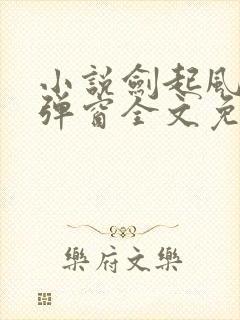 小說劍起風
彈窗全文免
樂府文樂